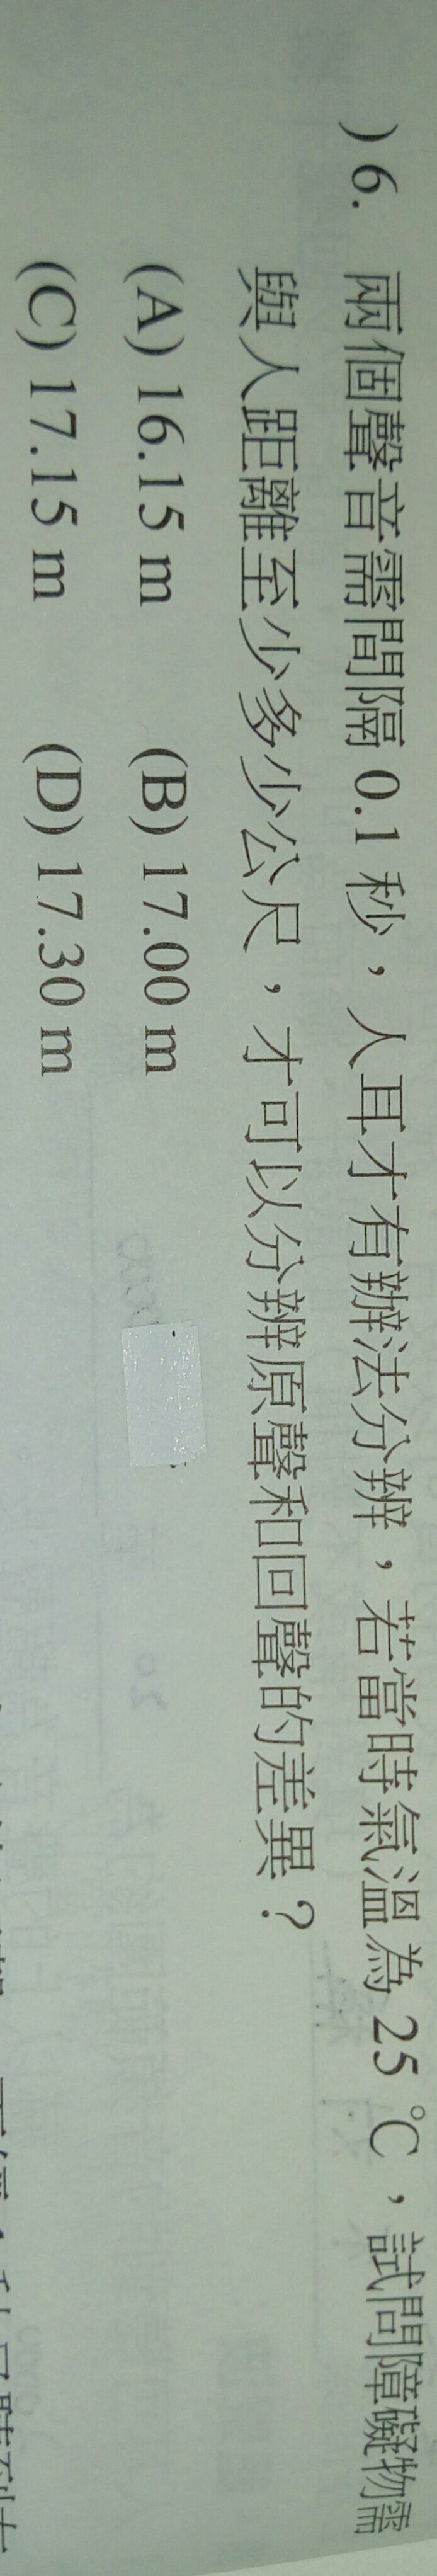 )6. 兩個聲音需間隔 0.1 秒，人耳才有辦法分辨，若當時氣溫為 25 ℃，試問障礙物需
與人距離至少多少公尺，才可以分辨原聲和回聲的差異？
(A) 16.15 m (B) 17.00 m
(C) 17.15 m (D) 17.30 m